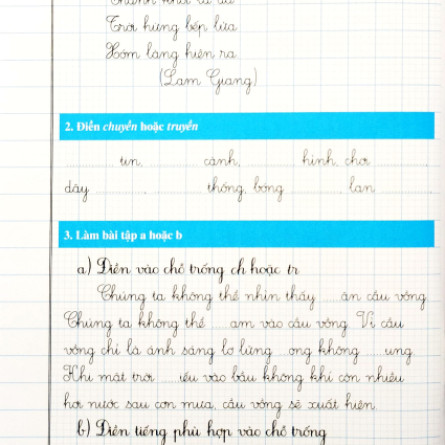 Trời hừng bếp lửa
Xóm làng hiện ra
(Lam Giang)
2. Điền chuyền hoặc truyền
... tin, ... cành, ... hình, chơi ...
dây ... thống, bóng ... lan ...
3. Làm bài tập a hoặc b
a) Điền vào chỗ trống ch hoặc tr
Chúng ta không thể nhìn thấy ... ân cầu vồng.
Chúng ta không thể ... ạm vào cầu vồng. Vì cầu
vồng chỉ là ánh sáng lơ lửng ... ong không ... ung.
Khi mặt trời ... iếu vào bầu không khí còn nhiều
hơi nước sau cơn mưa, cầu vồng sẽ xuất hiện.
b) Điền tiếng phù hợp vào chỗ trống